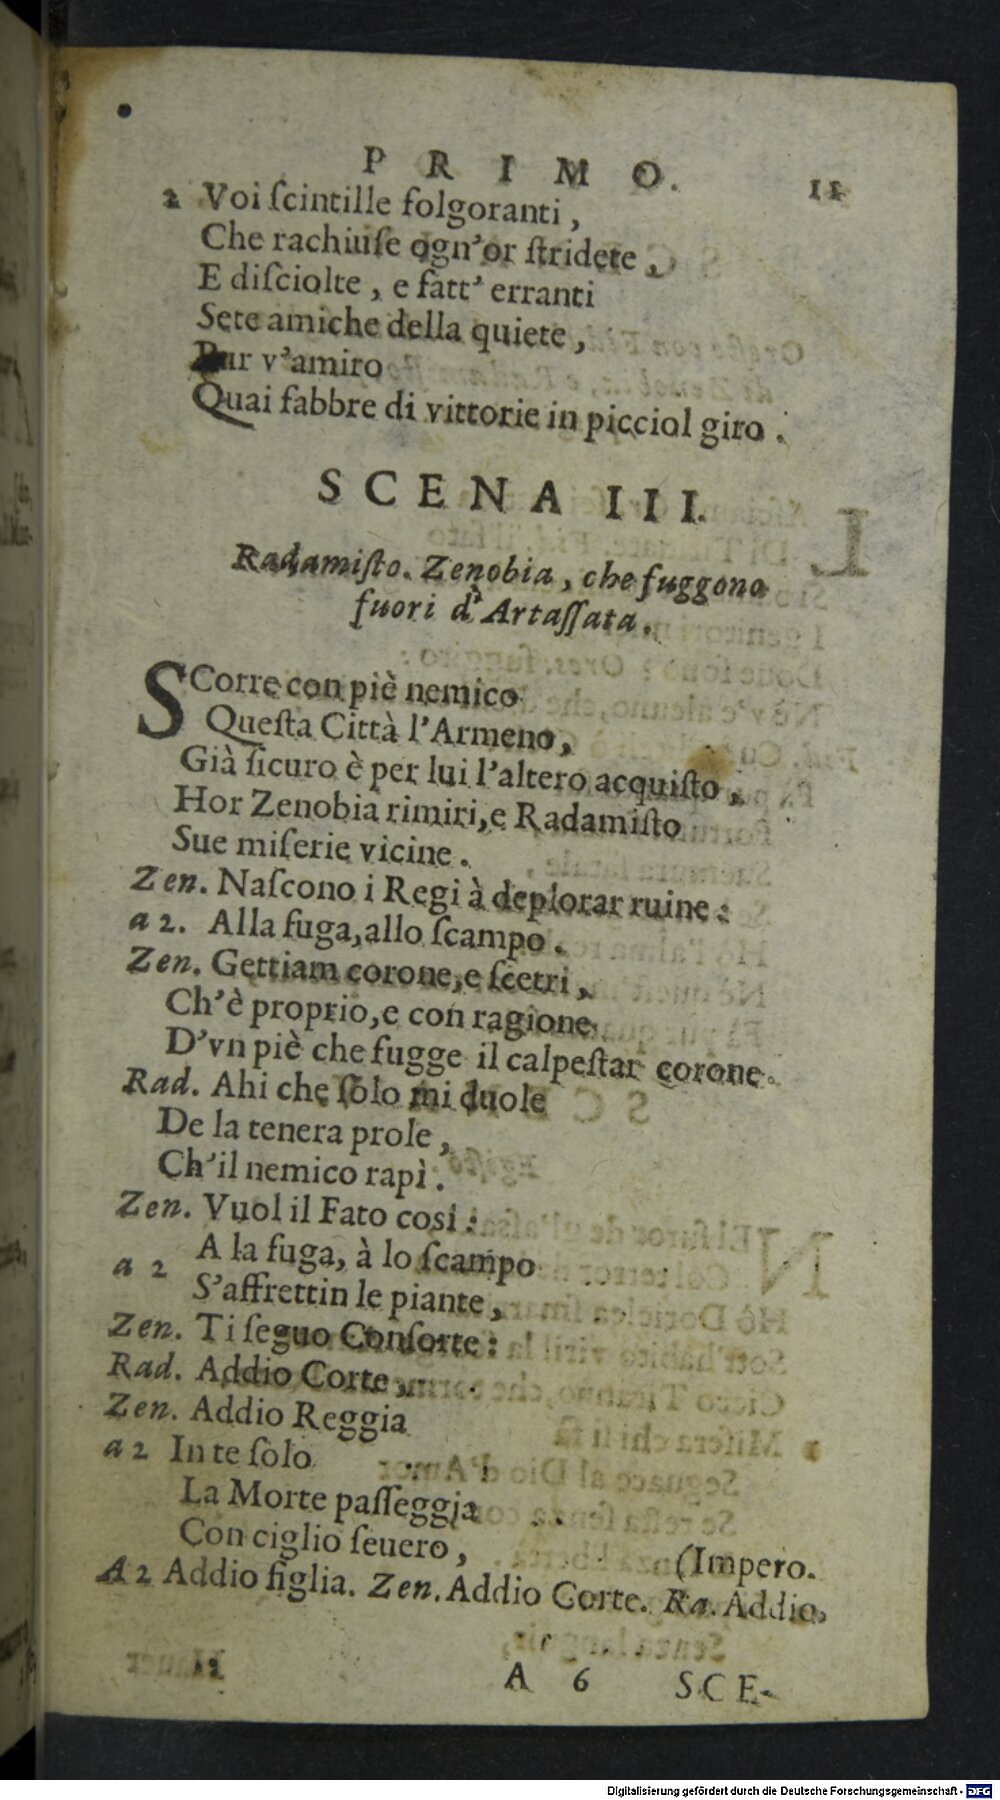 PRIMO. 11
2 Voi ſcintille folgoranti,
Che rachiuſe ogn'or ſtridete,
E diſciolte, e fatt' erranti
Sete amiche della quiete,
Pur v'amiro
Quai fabbre di vittorie in picciol giro.
SCENA III.
Radamiſto. Zenobia, che fuggono
fuori d'Artaſſata.
SCorre con piè nemico
Queſta Città l'Armeno,
Già ſicuro è per lui l'altero acquiſto,
Hor Zenobia rimiri, e Radamiſto
Sue miſerie vicine.
Zen. Naſcono i Regi à deplorar ruine:
a 2. Alla fuga, allo ſcampo.
Zen. Gettiam corone, e ſcetri,
Ch'è proprio, e con ragione
D'vn piè che fugge il calpeſtar corone.
Rad. Ahi che ſòlo mi duole
De la tenera prole,
Ch'il nemico rapì.
Zen. Vuol il Fato così:
a 2 A la fuga, à lo ſcampo
S'affrettin le piante,
Zen. Ti ſeguo Conſorte:
Rad. Addio Corte,
Zen. Addio Reggia
a 2 In te ſòlo
La Morte paſſeggia
Con ciglio ſeuero, (Impero.
A 2 Addio figlia. Zen. Addio Corte. Ra. Addio,
A 6 SCE-
Digitalisierung gefördert durch die Deutsche Forschungsgemeinschaft - DFG